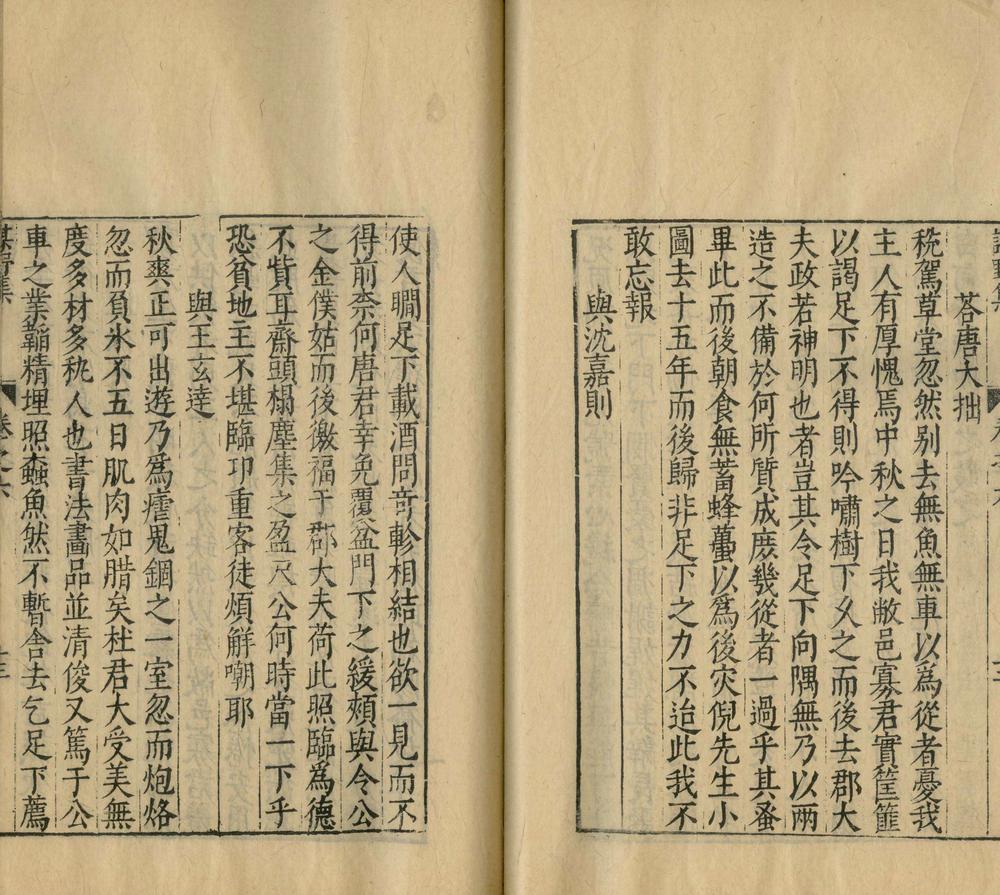 荅唐大拙
稅駕草堂忽然别去無魚無車以爲從者憂我
主人有厚愧焉中秋之日我敝邑寡君實筐篚
以謁足下不得則吟嘯樹下久之而後去郡大
夫政若神明也者豈其令足下向隅無乃以兩
造之不備於何所質成庶幾從者一過乎其蚤
畢此而後朝食無蓄蜂蠆以爲後灾倪先生小
圖去十五年而後歸非足下之力不迨此我不
敢忘報
與沈嘉則
使人瞷足下載酒問竒軫相結也欲一見而不
得前柰何唐君幸免覆盆門下之緩頰與令公
之金僕姑而後徼福于郡大夫荷此照臨爲德
不貲耳齋頭榻塵集之盈尺公何時當一下乎
恐貧地主不堪臨卭重客徒煩解嘲耶
與王玄達
秋爽正可出遊乃爲瘧鬼錮之一室忽而炮烙
忽而負氷不五日肌肉如腊矣杜君大受美無
度多材多秇人也書法畫品並清俊又篤于公
車之業韜精埋照蠧魚然不暫舍去乞足下薦
卷之六